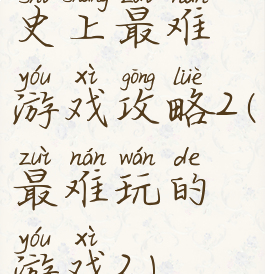 shǐ shàng zuì nán
史上最难
yóu xì gōng lüè
游戏攻略2(
zuì nán wán de
最难玩的
yóu xì
游戏2)